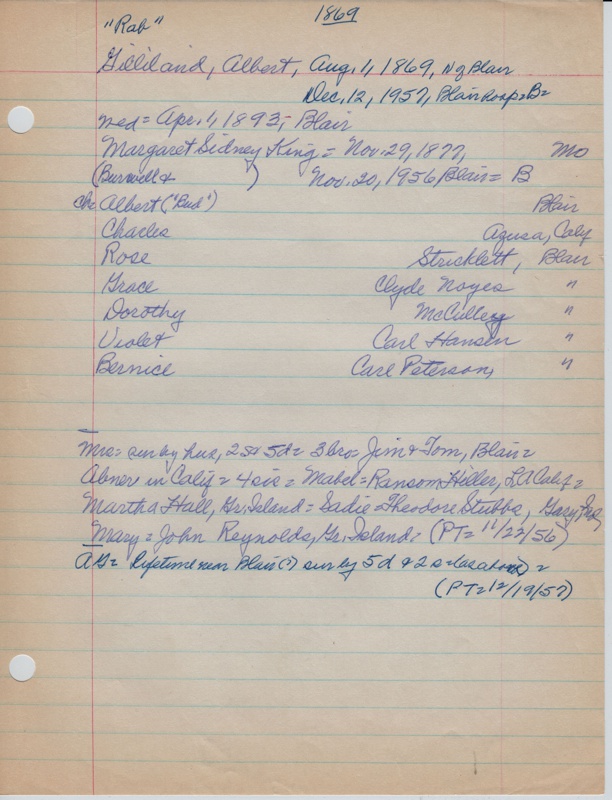 1869
"Rab"
Gilliland, Albert, Aug. 1, 1869, N of Blair
Dec. 12, 1957, Blair Hosp = B =
med = Apr. 1, 1893, Blair
Margaret Sidney King = Nov. 29, 1877, Mo
(Burwell & ) Nov. 20, 1956 Blair = B
Ch: Albert ("Bud") Blair
Charles Azusa, Calif
Rose Stricklett, Blair
Grace Clyde Noyes "
Dorothy McCulley "
Violet Carl Hansen "
Bernice Carl Peterson, "
Mrs = sur by hus, 2s & 5d = 3 bro = Jim & Tom, Blair =
Abner in Calif = 4 sis = Mabel = Ransom Hiller, LA Calif =
Martha Hall, Gr. Island = Sadie = Theodore Stubbs, Gary, Ind,
Mary = John Reynolds, Gr. Island = (PT = 11/22/56)
AG = Lifetime near Blair (?) sur by 5d & 2s =
(PT = 12/19/57)